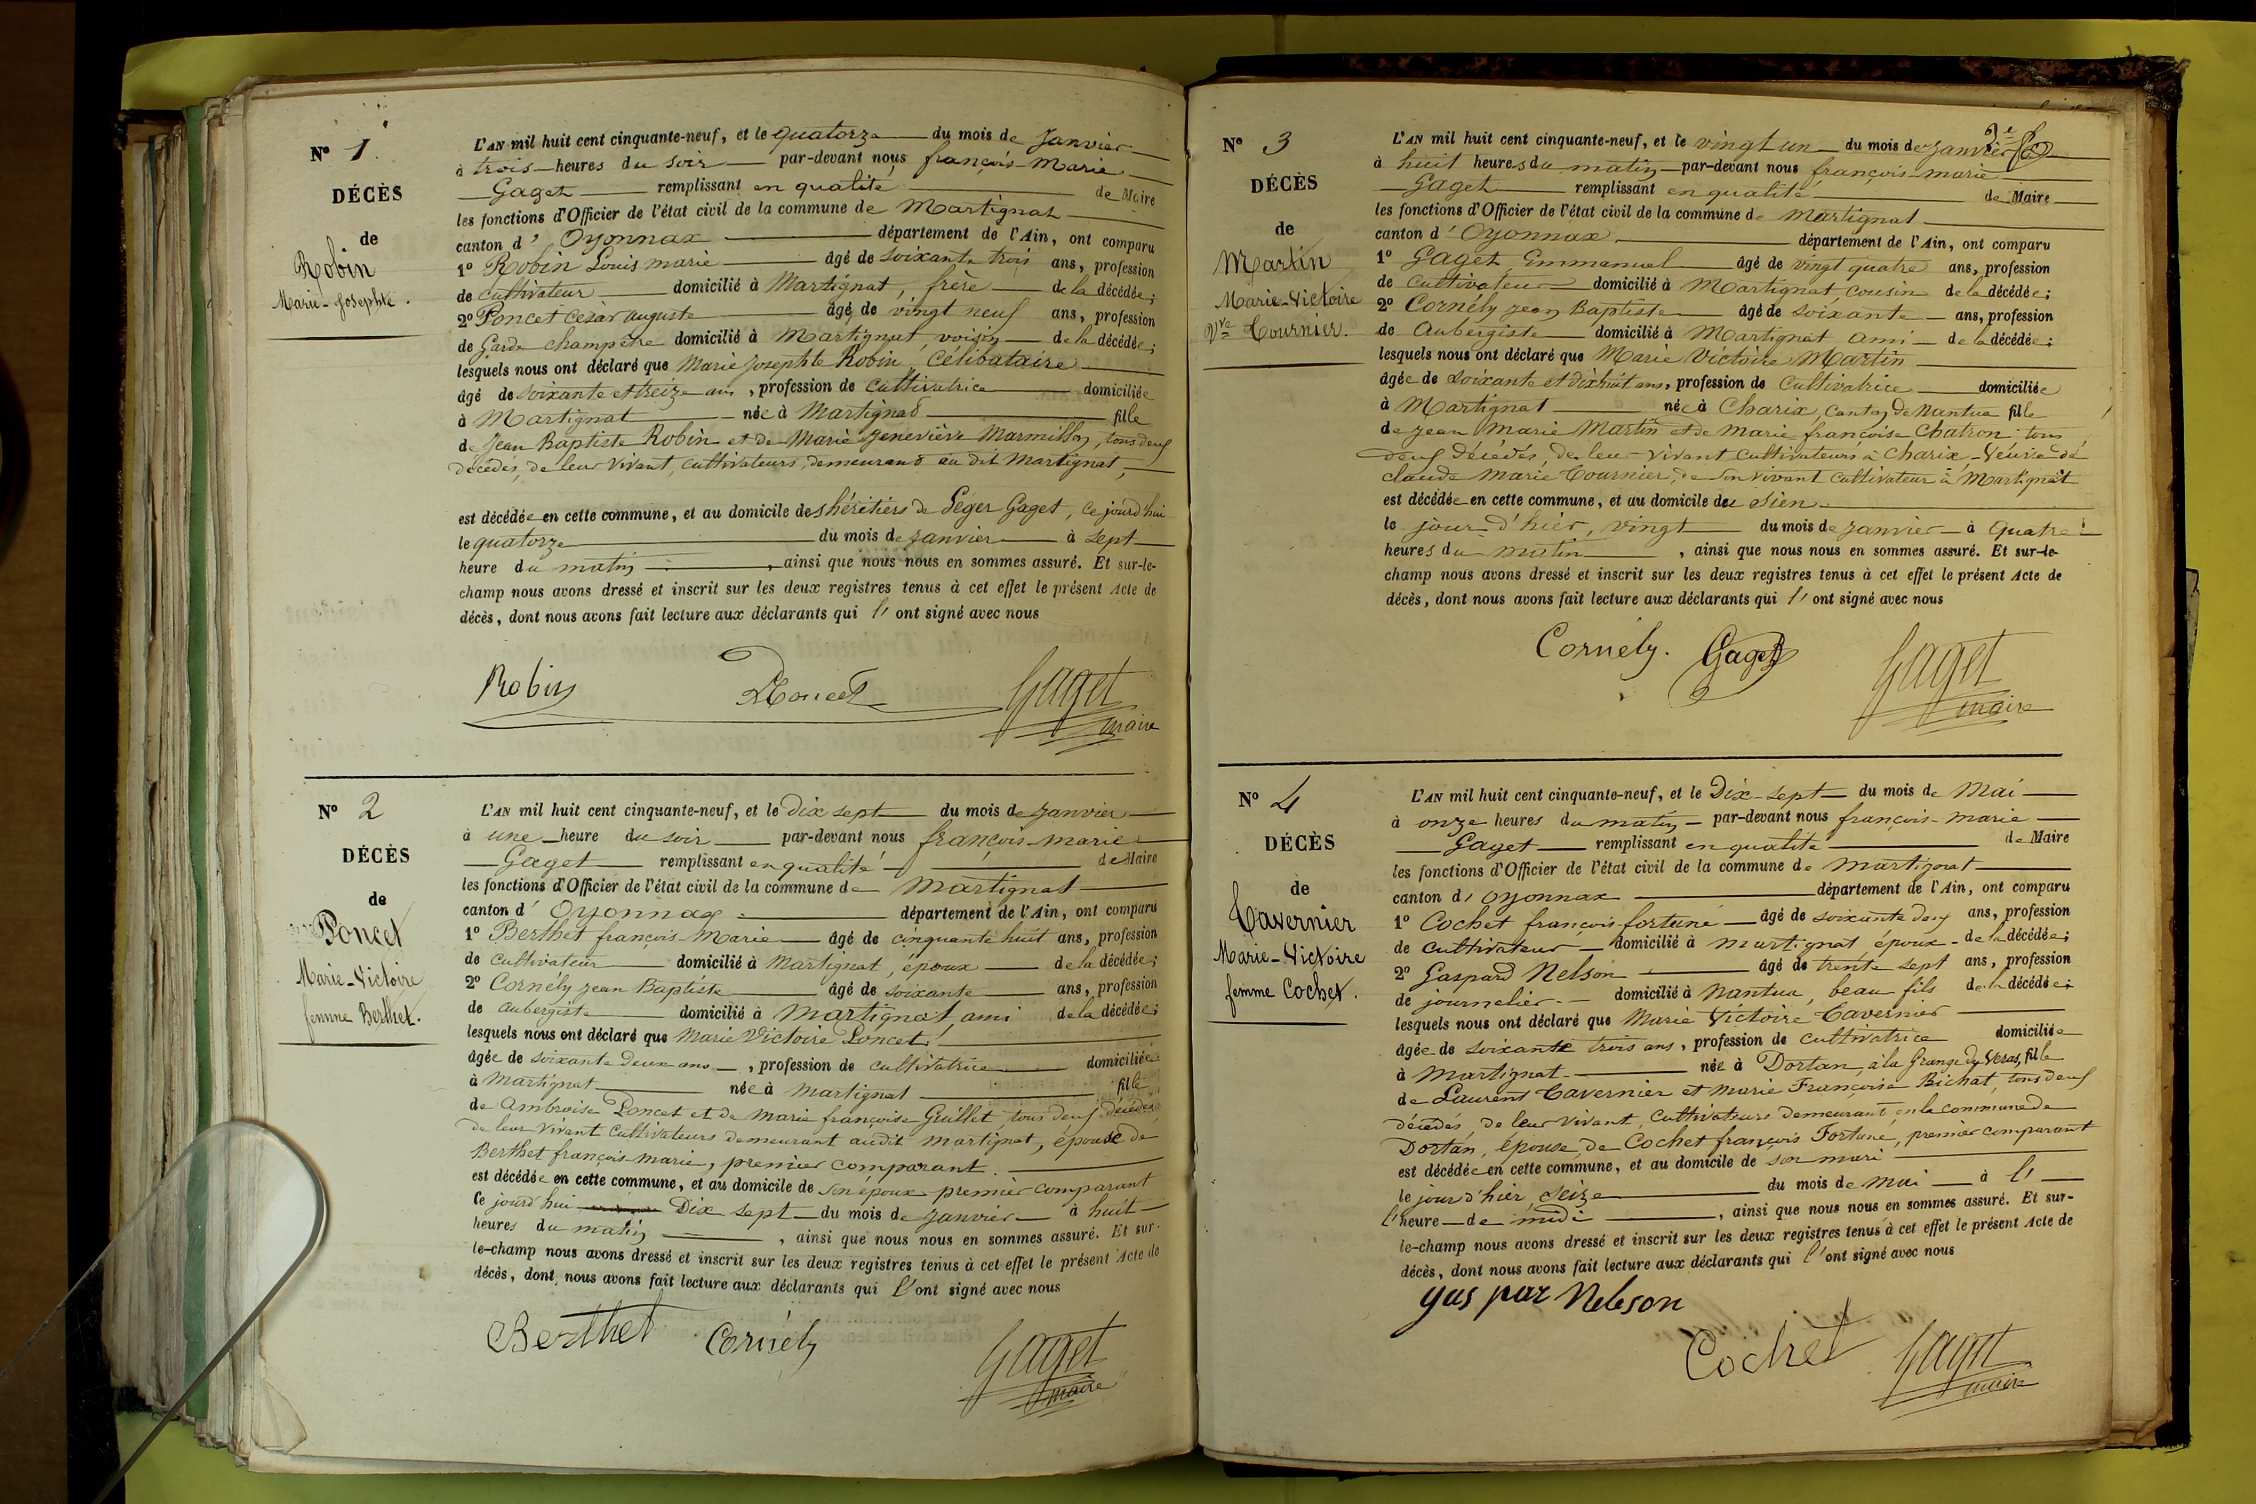 N° 1.
DÉCÈS
de
Robin
Marie-Josephte.
L'AN mil huit cent cinquante-neuf, et le quatorze du mois de Janvier
à trois heures du soir par-devant nous françois-Marie
Gaget remplissant en qualité de Maire
les fonctions d'Officier de l'état civil de la commune de Martignat
canton d'Oyonnax département de l'Ain, ont comparu
1° Robin Louis marie âgé de soixante trois ans, profession
de cultivateur domicilié à Martignat, frère de la décédée;
2° Poncet César auguste âgé de vingt neuf ans, profession
de Garde champêtre domicilié à Martignat, voisin de la décédée;
lesquels nous ont déclaré que Marie Josephte Robin, Célibataire
âgé de soixante et treize ans, profession de cultivatrice domiciliée
à Martignat née à Martignat fille
de Jean Baptiste Robin et de Marie Jeneviève Marmillon, tous deux
décédés, de leur vivant, cultivateurs, demeurant au dit Martignat,
est décédée en cette commune, et au domicile des héritiers de Léger Gaget, ce jourd'hui
le quatorze du mois de janvier à sept
heure du matin, ainsi que nous nous en sommes assuré. Et sur-le-
champ nous avons dressé et inscrit sur les deux registres tenus à cet effet le présent Acte de
décès, dont nous avons fait lecture aux déclarants qui l'ont signé avec nous
Robin Poncet Gaget
maire
N° 2
DÉCÈS
de
Poncet
Marie-Victoire
femme Berthet.
L'AN mil huit cent cinquante-neuf, et le Dix sept du mois de janvier
à une heure du soir par-devant nous françois-marie
Gaget remplissant en qualité de Maire
les fonctions d'Officier de l'état civil de la commune de Martignat
canton d'Oyonnax département de l'Ain, ont comparu
1° Berthet françois-Marie âgé de cinquante huit ans, profession
de cultivateur domicilié à Martignat, époux de la décédée;
2° Cornély jean Baptiste âgé de soixante ans, profession
de aubergiste domicilié à Martignat ami de la décédée;
lesquels nous ont déclaré que Marie Victoire Poncet
âgée de soixante deux ans, profession de cultivatrice domiciliée
à Martignat née à Martignat fille
de Ambroise Poncet et de Marie françoise Guillet, tous deux décédés
de leur vivant cultivateurs demeurant audit Martignat, épouse de
Berthet françois-marie, premier comparant.
est décédée en cette commune, et au domicile de son époux premier comparant
Ce jourd'hui Dix sept du mois de janvier à huit
heures du matin, ainsi que nous nous en sommes assuré. Et sur-
le-champ nous avons dressé et inscrit sur les deux registres tenus à cet effet le présent Acte de
décès, dont nous avons fait lecture aux déclarants qui l'ont signé avec nous
Berthet Cornély Gaget
maire
N° 3
DÉCÈS
de
Martin
Marie-Victoire
Vve Tournier.
L'AN mil huit cent cinquante-neuf, et le vingt un du mois de janvier
à huit heures du matin par-devant nous françois-marie
Gaget remplissant en qualité de Maire
les fonctions d'Officier de l'état civil de la commune de Martignat
canton d'Oyonnax département de l'Ain, ont comparu
1° Gaget Emmanuel âgé de vingt quatre ans, profession
de cultivateur domicilié à Martignat, cousin de la décédée;
2° Cornély jean Baptiste âgé de soixante ans, profession
de Aubergiste domicilié à Martignat ami de la décédée;
lesquels nous ont déclaré que Marie Victoire Martin
âgée de soixante et dixhuit ans, profession de Cultivatrice domiciliée
à Martignat née à Charix, Canton de Nantua fille
de jean Marie Martin et de Marie françoise Chatron tous
deux décédés, de leur vivant cultivateurs à Charix - Veuve de
claude Marie Tournier, de son vivant cultivateur à Martignat
est décédée en cette commune, et au domicile du sien
le jour d'hier, vingt du mois de janvier à quatre
heures du matin, ainsi que nous nous en sommes assuré. Et sur-le-
champ nous avons dressé et inscrit sur les deux registres tenus à cet effet le présent Acte de
décès, dont nous avons fait lecture aux déclarants qui l'ont signé avec nous
Cornély. Gaget Gaget
maire
N° 4
DÉCÈS
de
Tavernier
Marie-Victoire
femme Cochet.
L'AN mil huit cent cinquante-neuf, et le Dix-sept du mois de Mai
à onze heures du matin par-devant nous françois-marie
Gaget remplissant en qualité de Maire
les fonctions d'Officier de l'état civil de la commune de Martignat
canton d'oyonnax département de l'Ain, ont comparu
1° Cochet françois-fortuné âgé de soixante deux ans, profession
de cultivateur domicilié à Martignat époux de la décédée;
2° Gaspard Nelson âgé de trente sept ans, profession
de journalier domicilié à Nantua, beau fils de la décédée;
lesquels nous ont déclaré que Marie Victoire Tavernier
âgée de soixante trois ans, profession de cultivatrice domiciliée
à Martignat née à Dortan, à la Grange du Veras, fille
de Laurent Tavernier et Marie Françoise Bichat, tous deux
décédés, de leur vivant, cultivateurs demeurant en la commune de
Dortan, épouse de Cochet françois Fortuné, premier comparant
est décédée en cette commune, et au domicile de son mari
le jour d'hier, seize du mois de mai à l'
heure de midi, ainsi que nous nous en sommes assuré. Et sur-
le-champ nous avons dressé et inscrit sur les deux registres tenus à cet effet le présent Acte de
décès, dont nous avons fait lecture aux déclarants qui l'ont signé avec nous
gas par Neleson
Cochet Gaget
maire